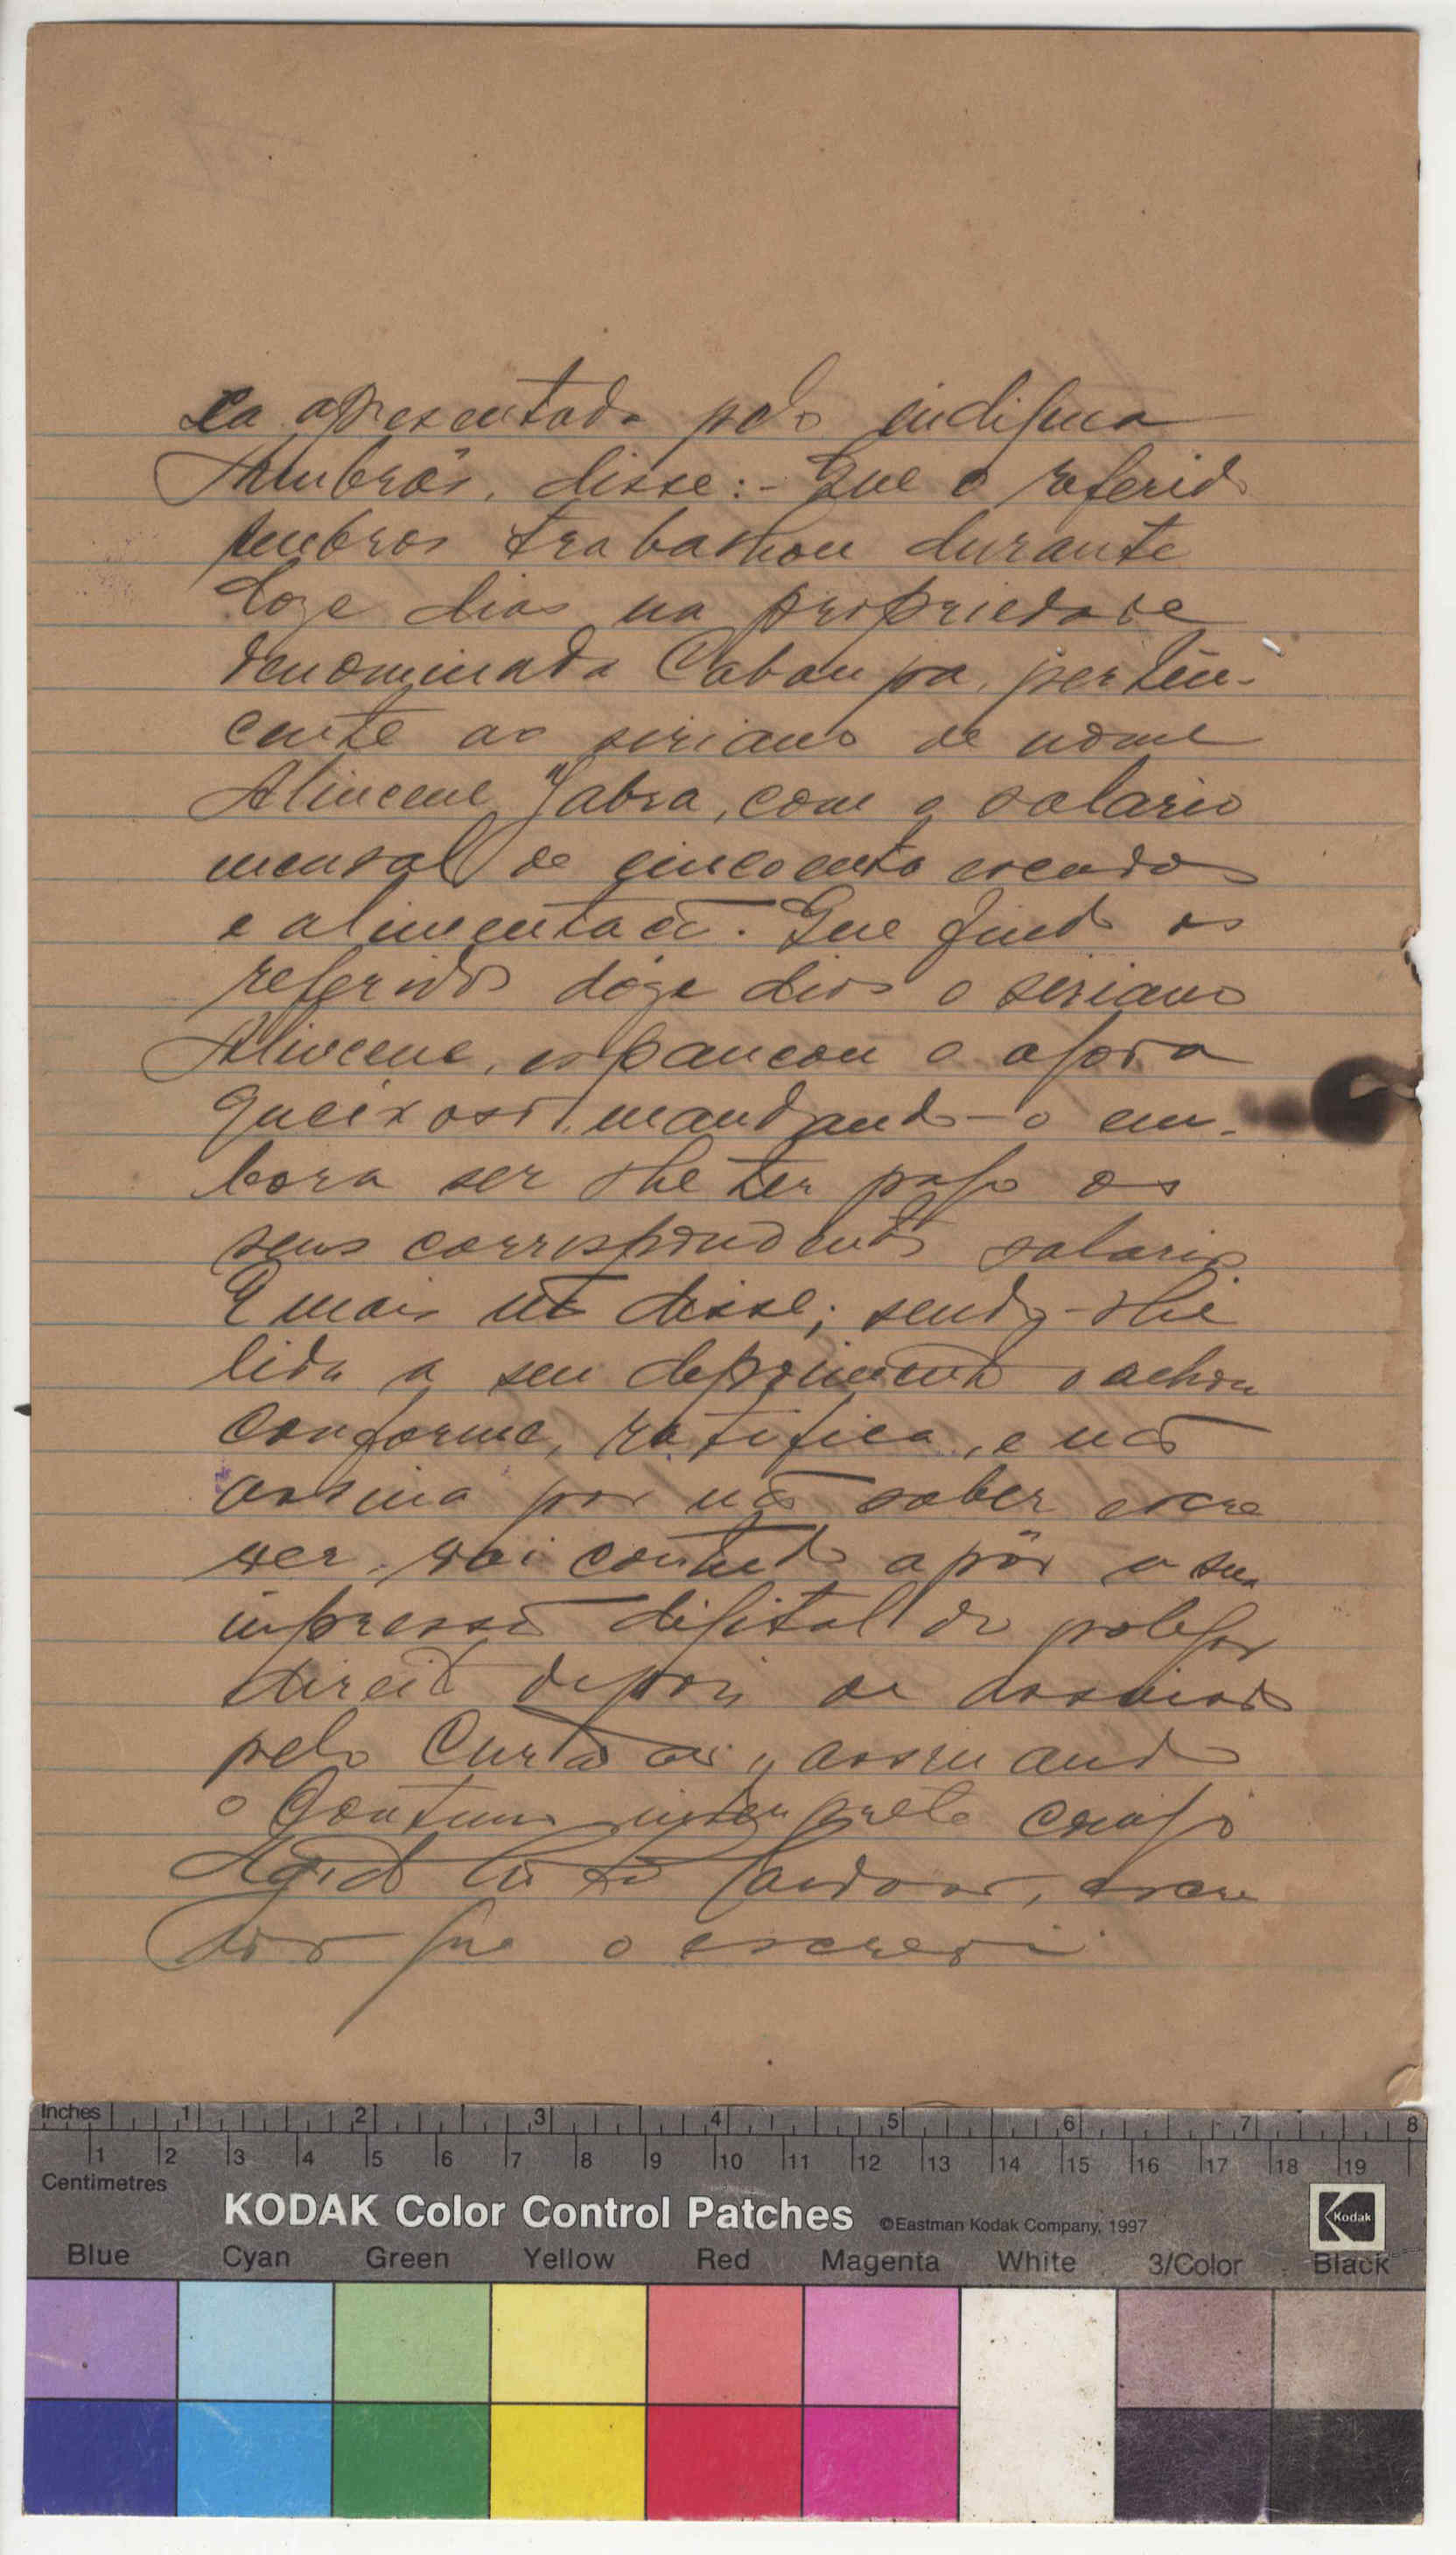 xa apresentada pelo indigena
Ambrós, disse:- Que o referido
Ambros trabalhou durante
doze dias na propriedade
denominada Cabanpa, perten-
cente ao siriano de nome
Jabra, com o salario
mensal de cincoenta escudos
e alimentacã. Que findo os
referidos dóze dias o siriano
espancou o agora
queixoso, mandando-o em-
bora ser lhe ter pago os
seus correspondentes salarios.
E mais nã disse; sendo-lhe
lido o seu depoimento o achou
conforme, ratifica, e não
assina por não saber escre
ver, vai contudo apôr a sua
impressã digital do polegar
direito depois de assinado
pelo Curador, assinando
o interprete comigo
escri
vão que o escrevi
Inches 1 2 3 4 5 6 7 8
1 2 3 4 5 6 7 8 9 10 11 12 13 14 15 16 17 18 19
Centimetres
KODAK Color Control Patches ©Eastman Kodak Company, 1997 Kodak
Blue Cyan Green Yellow Red Magenta White 3/Color Black